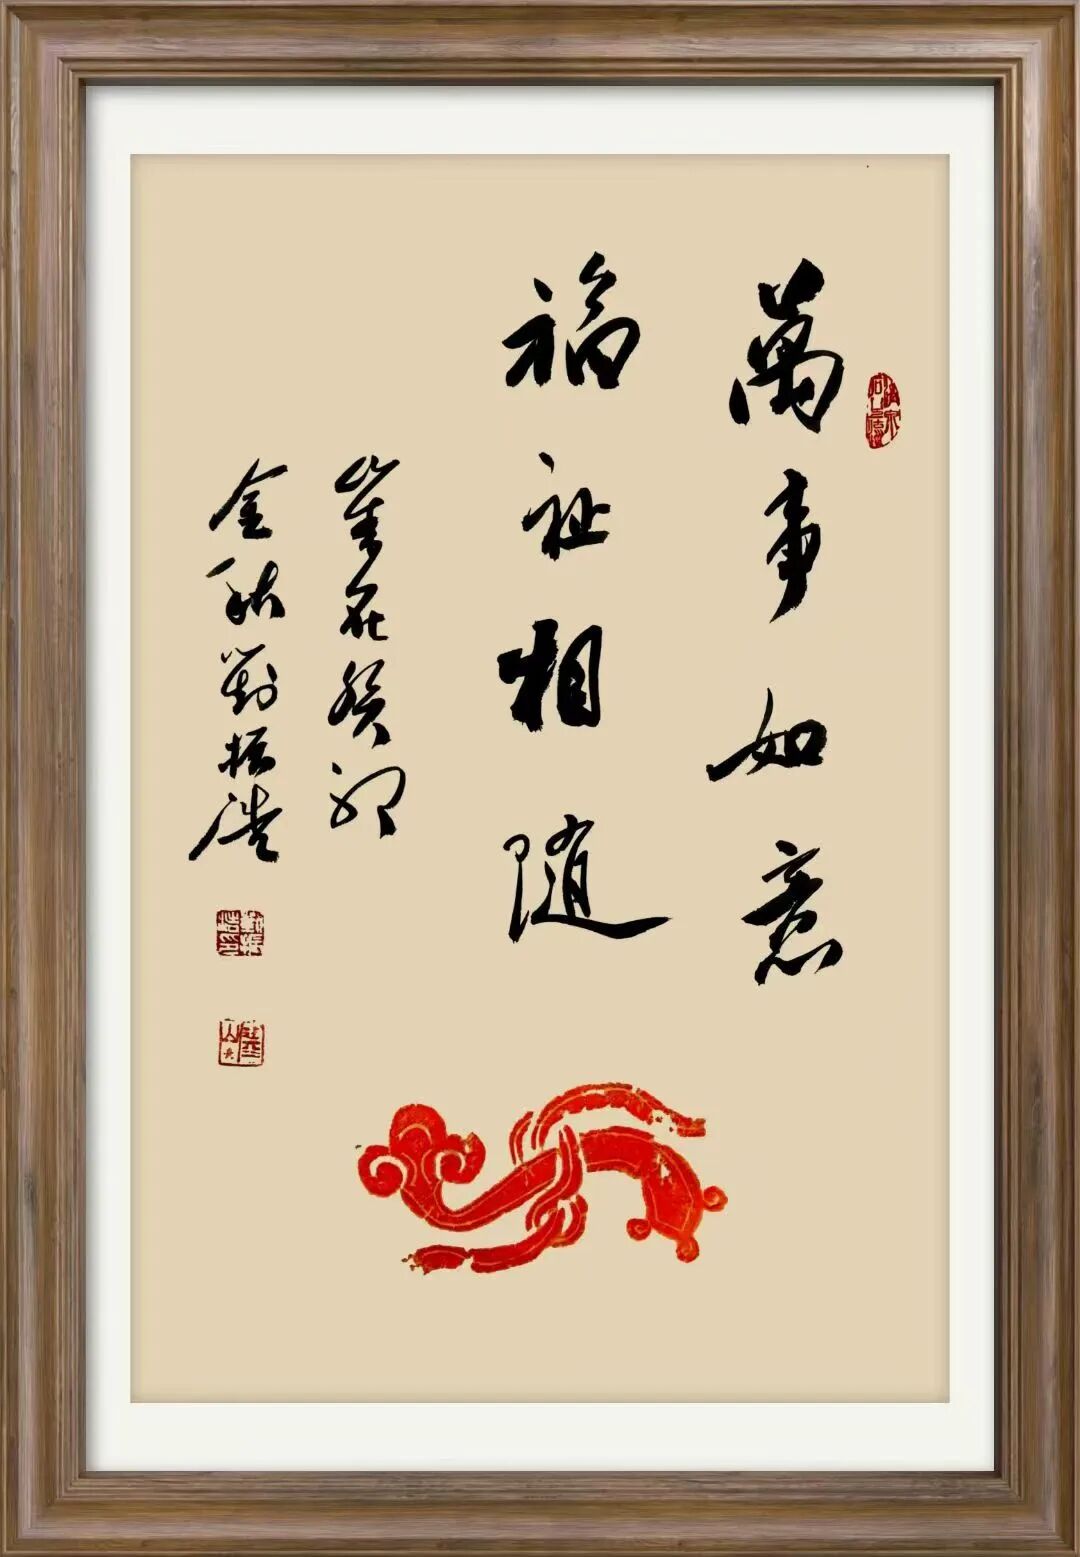 萬事如意
福祉相随
歲在癸卯
金秋劉振浩